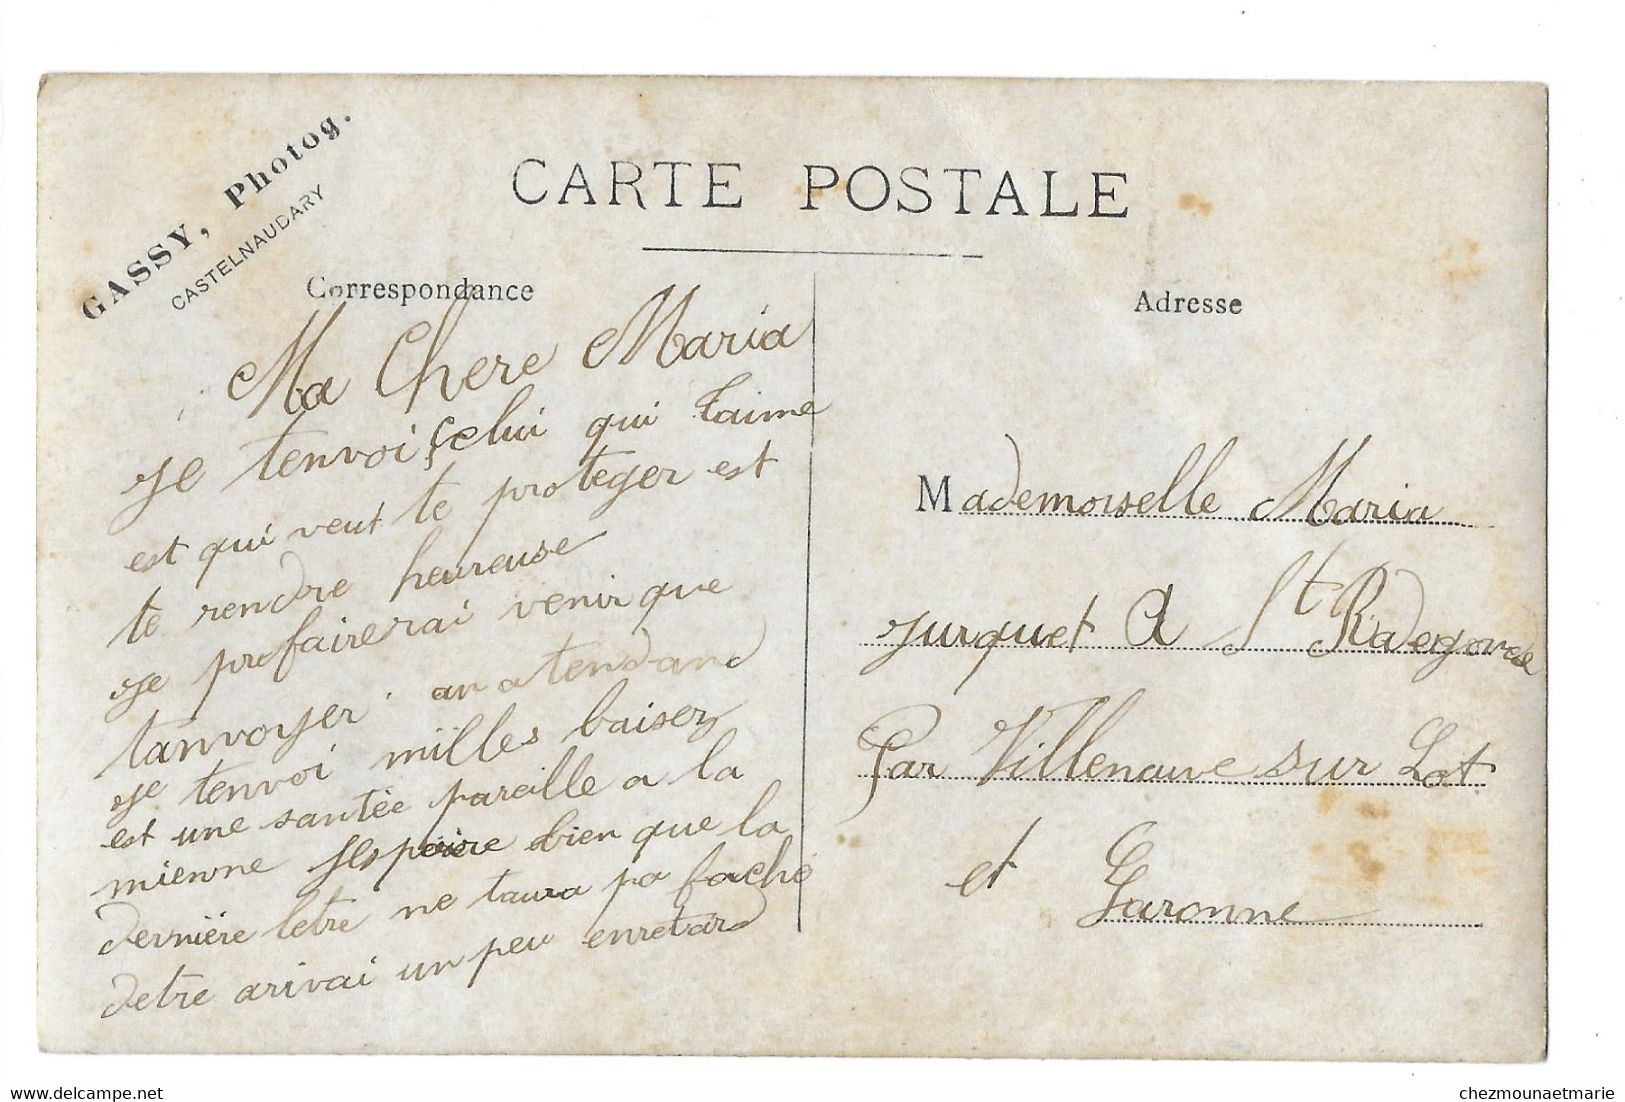 GASSY, Photog.
CASTELNAUDARY
CARTE POSTALE
Correspondance
Ma Chere Maria
Je tenvoi çelui qui taime
est qui veut te proteger est
te rendre heureuse
je profairerai venir que
tanvoyer . an atendand
je tenvoi milles baisez
est une santèe pareille a la
mienne jespoire bien que la
dernière letre ne taura pa faché
detre arivai un peu enretard
Adresse
Mademoiselle Maria
Jurquet A St Radegonde
Par Villenauve sur Lot
et Garonne
chezmounaetmarie